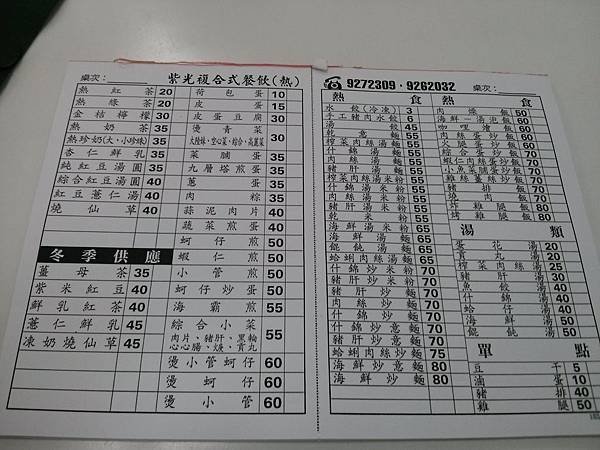 桌次:
紫光複合式餐飲(熱)
熱紅茶 20
熱綠茶 20
金桔檸檬 30
熱奶茶 35
熱珍奶(大、小珍珠) 35
杏仁鮮乳 35
純紅豆湯圓 35
綜合紅豆湯圓 40
紅豆薏仁湯 40
燒仙草 40
冬季供應
薑母茶 35
紫米紅豆 40
鮮乳紅茶 40
薏仁鮮乳 45
凍奶燒仙草 45
荷包蛋 10
皮蛋 15
皮蛋豆腐 30
燙青菜 30
大陸妹、空心菜、綜合、高麗菜
菜脯蛋 35
九層塔煎蛋 35
蔥蛋 35
肉粽 35
蒜泥肉片 40
蔬菜煎蛋 40
蚵仔煎 50
蝦仁煎 50
小管煎 50
蚵仔炒蛋 50
海霸煎 55
綜合小菜 55
肉片、豬肝、黑輪
燙小管蚵仔 60
燙蚵仔 60
燙小管 60
☎ 9272309·9262032
桌次:
熱食
水餃(冷凍) 3
手工豬肉水餃 6
湯餃 45
乾意麵 55
榨菜肉絲湯麵 55
什錦湯麵 55
肉絲湯麵 55
豬肝湯麵 55
榨菜肉絲湯米粉 55
什錦湯米粉 55
肉絲湯米粉 55
豬肝湯米粉 55
乾米粉 55
海鮮湯米粉 65
海鮮湯麵 65
餛飩湯麵 65
蛤蜊肉絲湯麵 65
什錦炒米粉 70
豬肝炒米粉 70
肉絲炒米粉 70
肉絲炒麵 70
什錦炒意麵 70
豬肝炒意麵 70
蛤蜊肉絲炒麵 75
海鮮炒意麵 80
海鮮炒麵 80
熱食
肉燥飯 50
海鮮—湯泡飯 60
咖哩燴飯 60
肉絲蛋炒飯 60
火腿蛋炒飯 60
綜合蛋炒飯 60
蝦仁肉絲蛋炒飯 70
小魚菜脯蛋炒飯 70
雞絲薑絲炒飯 70
豬排飯 70
燒肉飯 70
炸雞腿飯 80
烤雞腿飯 80
湯類
蛋花湯 20
貢丸湯 20
榨菜肉絲湯 25
豬肝湯 30
魚餃湯 40
什錦湯 40
蛤仔湯 50
海鮮湯 50
餛飩湯 50
單點
豆干 5
滷蛋 10
豬排 40
雞腿 50